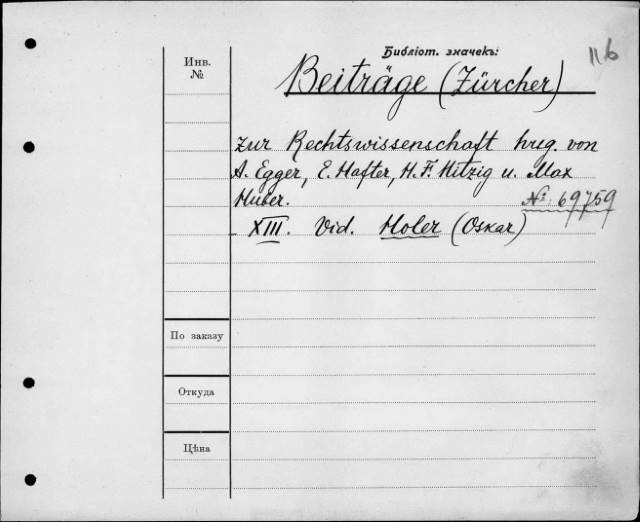 Библіот. значекъ:
116
Инв.
№
Beiträge (Zürcher)
zur Rechtswissenschaft hrsg. von
A. Egger, E. Hafter, H. F. Hitzig u. Max
Huber.
№: 69759
XIII. Vid. Holer (Oskar)
По заказу
Откуда
Цѣна